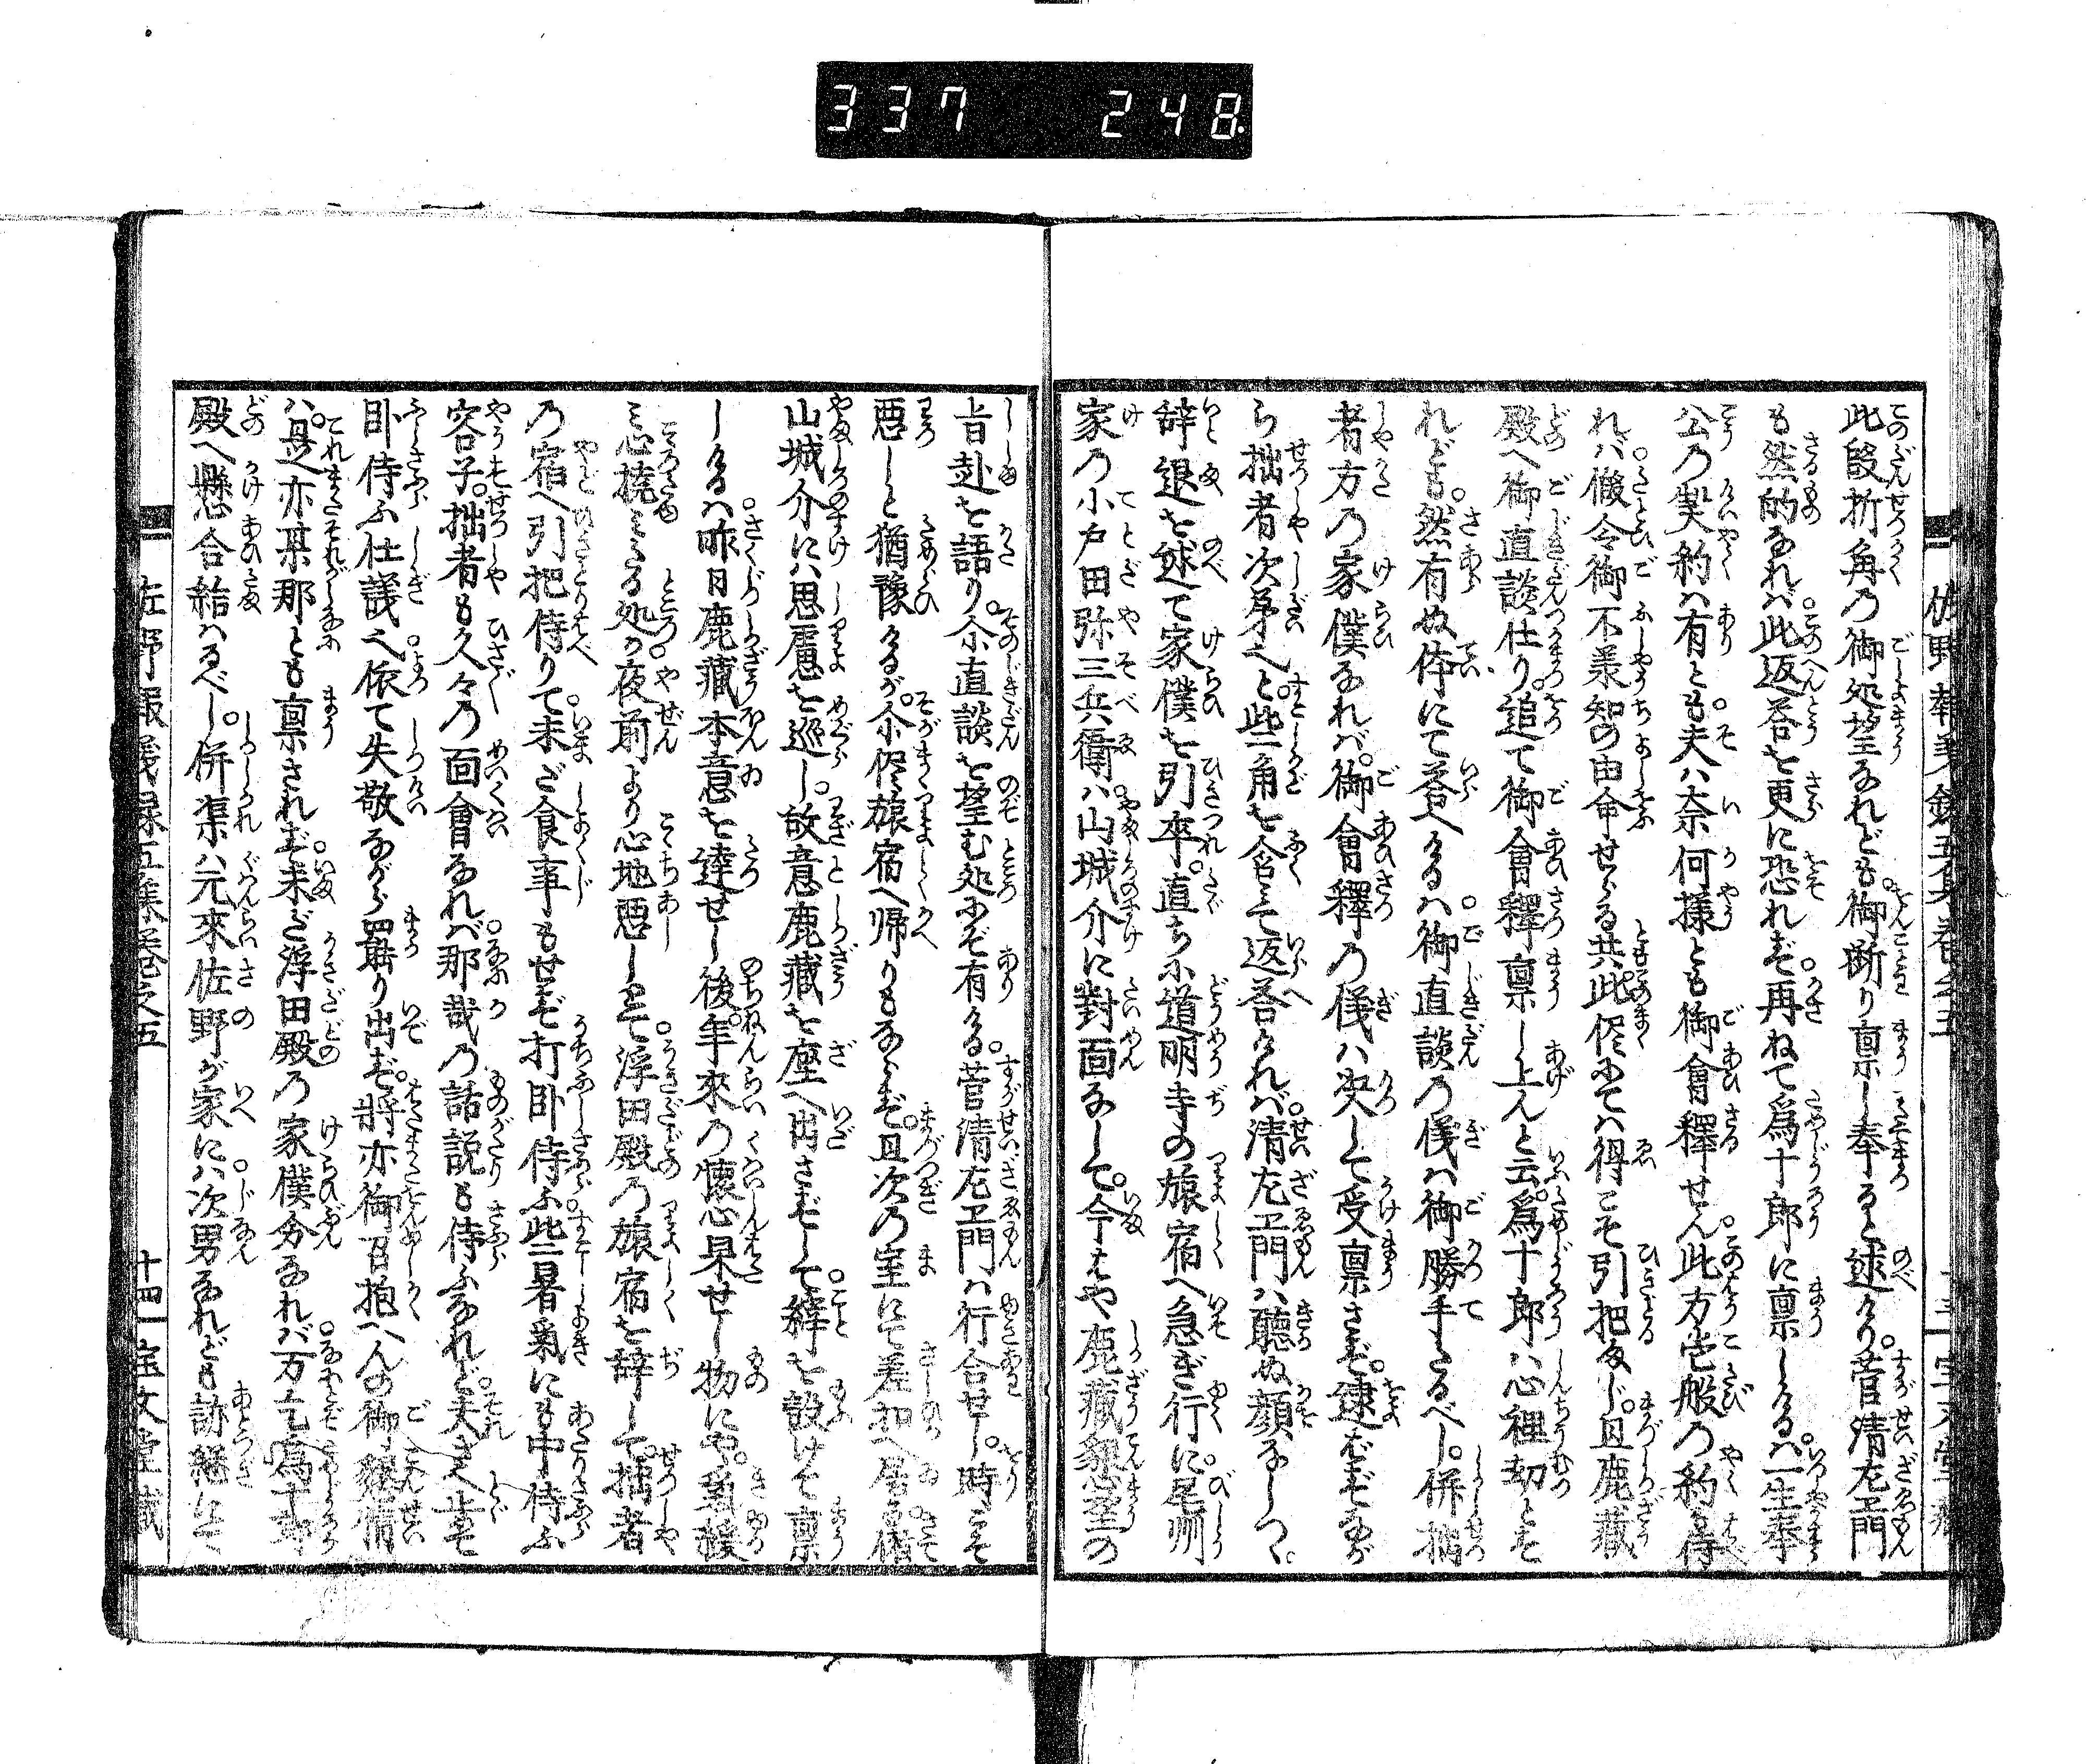 337 248
此段折角の御処望なれども。御断り禀し奉ると述けり。菅清左エ門
も然的なれば此返答を更に恐れず。再ねて為十郎に禀しけるハ。一生奉
公の契約ハ有とも。夫ハ奈何様とも御會釋せん。此方壱般の約を得
れバ。假令御不羕知の由命せらる共。此侭にてハ得こそ引把まじ。且鹿藏
殿へ御直談仕り。追て御會釋禀し上んと云。為十郎ハ心裡切とを
れども。然有ぬ体にて答へけるハ。御直談の儀ハ御勝手たるべし。併拙
者方の家僕なれバ。御會釋の儀ハ决して受禀さず。逮ばずなが
ら拙者次第へと。些角を含みて返答けれバ。清左エ門ハ聴ぬ顔なしつゝ。
辞退を述て家僕を引卒。直ちに道明寺の旅宿へ急ぎ行に。尾州
家の小戸田弥三兵衛ハ。山城介に對面なして。今はや鹿藏懇望の
旨赴を語り。尒直談を望む処にぞ有ける。菅清左エ門ハ行合せし。時こそ
悪しと猶豫けるが。尒侭旅宿へ帰りもならず。且次の室にて差扣へ居る。偖
山城介にハ思慮を巡し。故意と鹿藏を座へ出さずして。縡を設けて禀
しけるハ。昨日鹿藏本意を達せし後。年來の懐心果せし物にや。氣緩
み心撓みたる処か。夜前より心地悪しとて。浮田殿の旅宿を辞して。拙者
の宿へ引把侍りて。未ダ食事もせずして打卧侍ふ。些暑氣にも中侍ふ
容子。拙者も久々の面會なれバ。那哉の話説も侍ふなれど。夫さえ亡せず
卧侍ふ仕議へ。依て失敬ながら罷り出ず。將亦御召抱へんの御懇情
ハ。是亦某那とも禀されず。未ダ浮田殿の家僕分なれバ。万乞為十郎
殿へ懸合給ハるべし。併渠ハ元來佐野が家にハ。次男なれども跡継なく
佐野報義録五集卷之五
十四 宝文堂藏